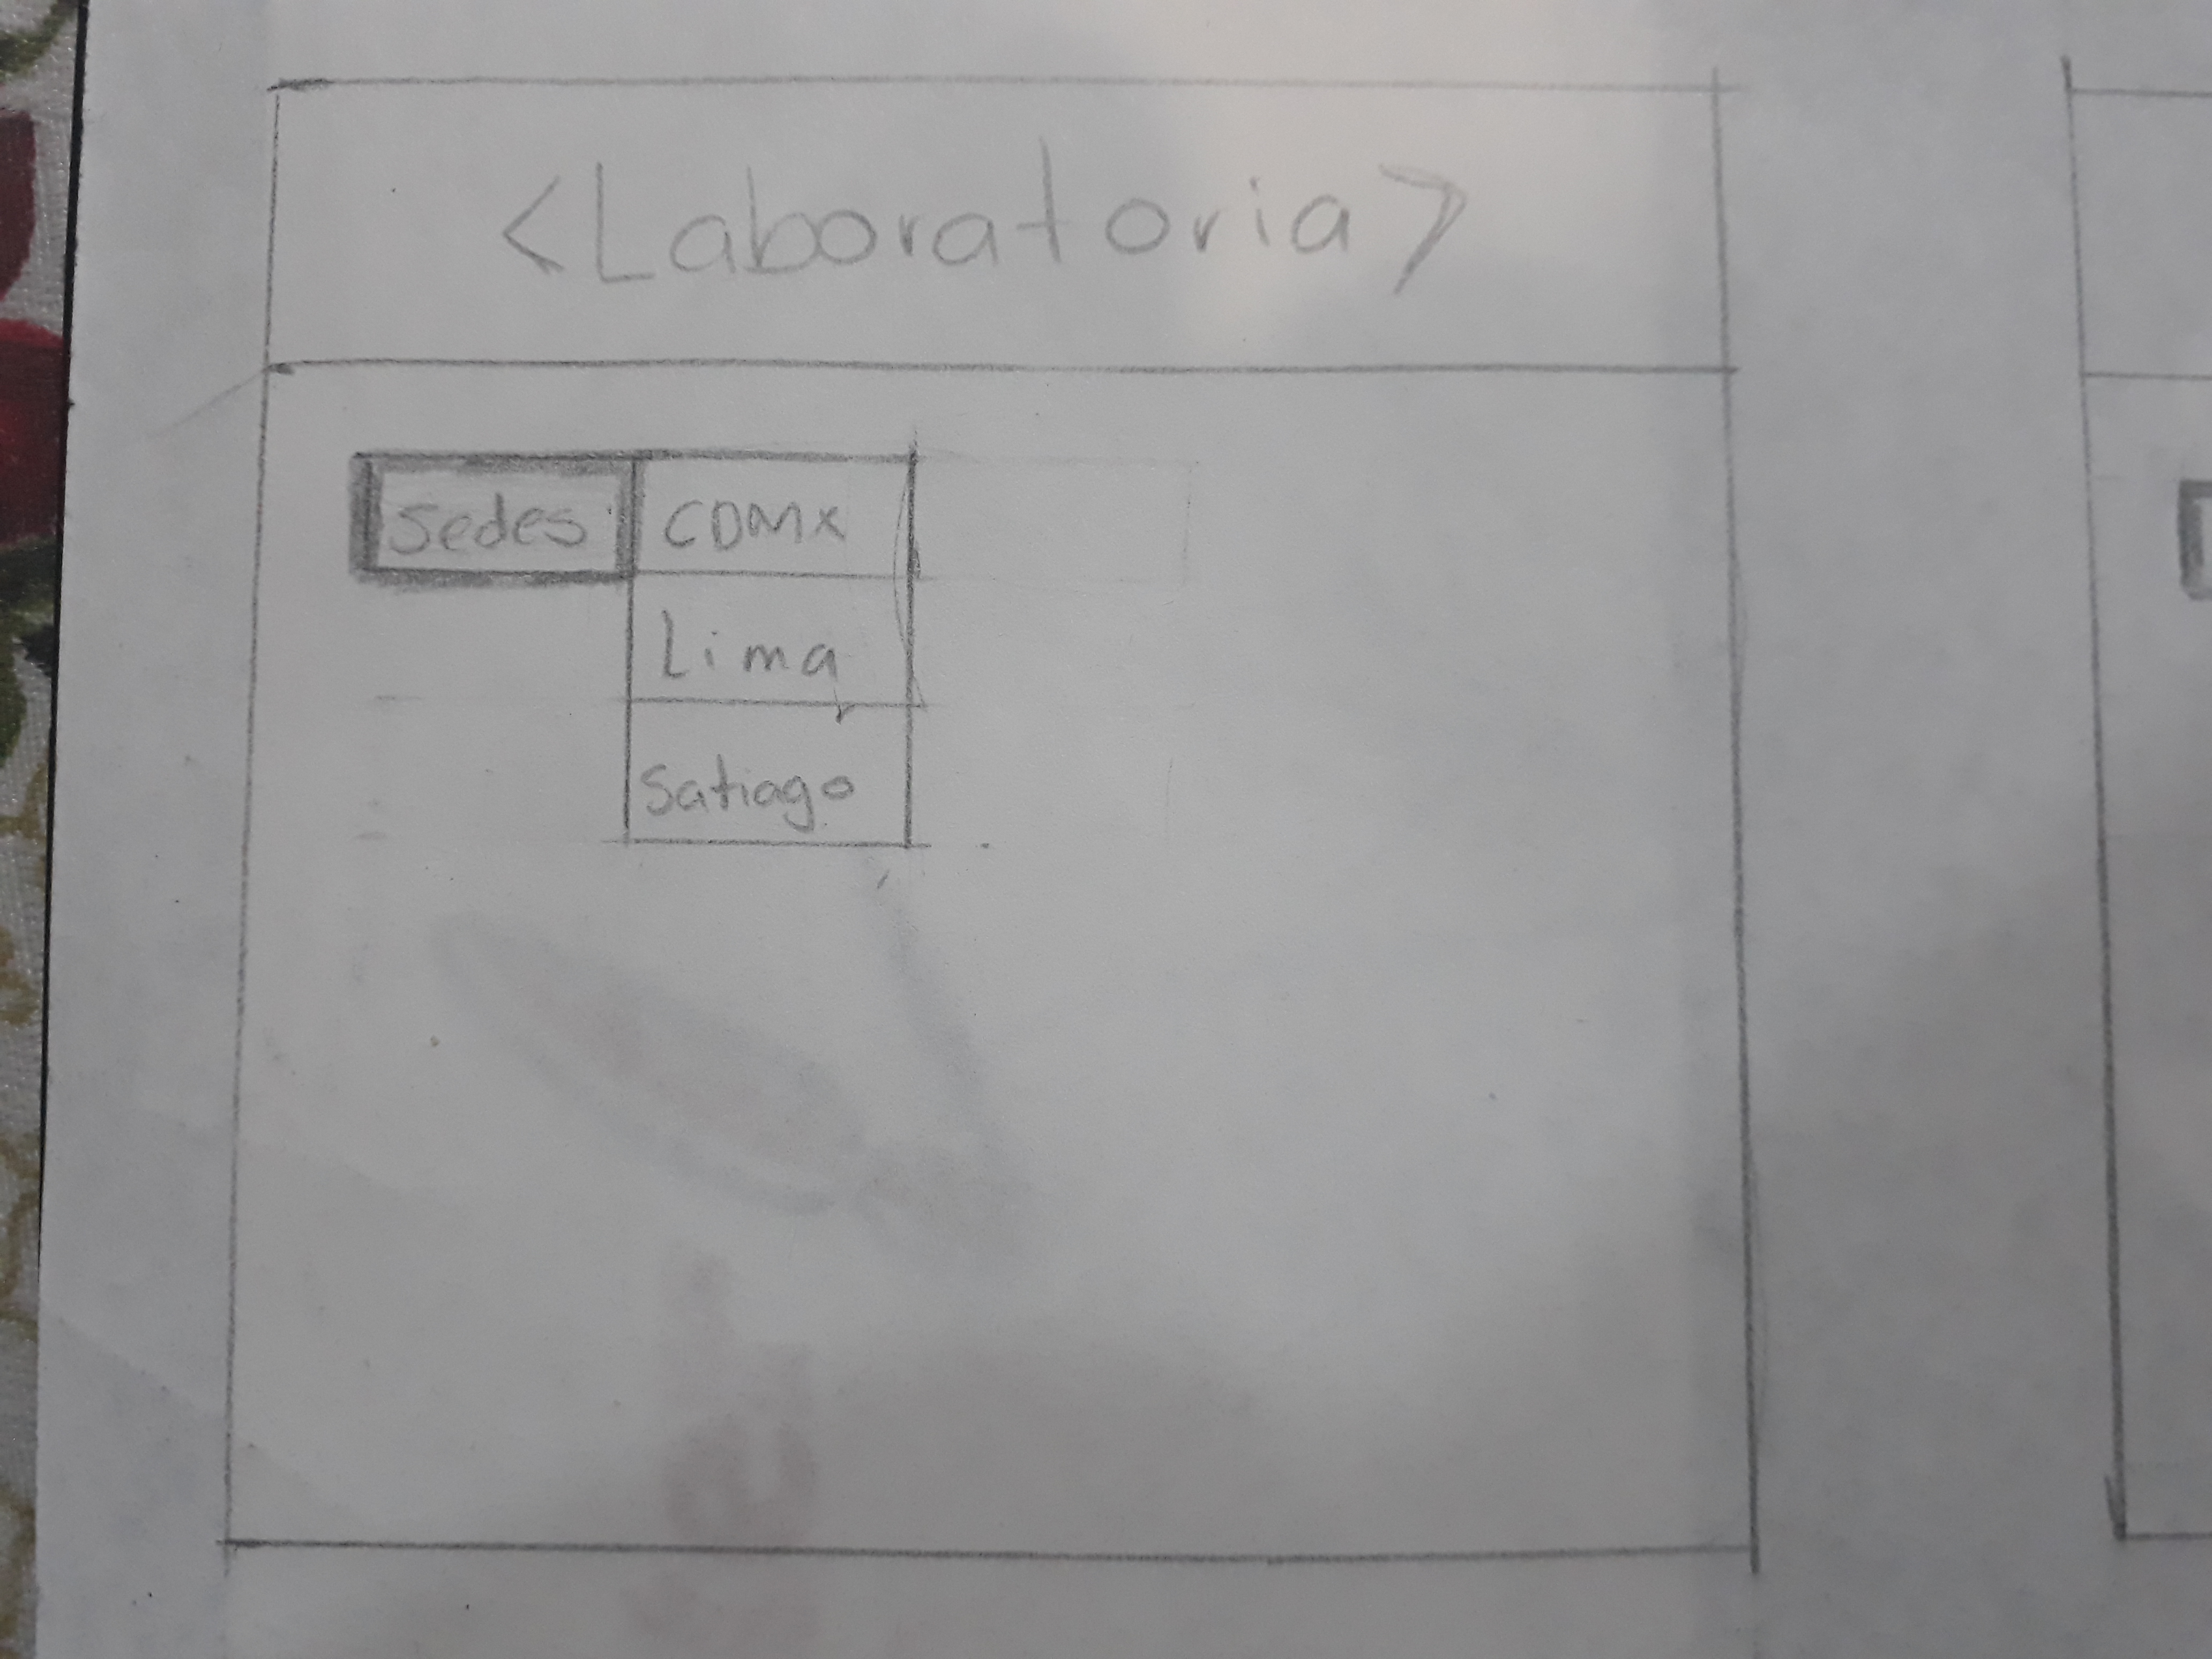 <Laboratoria>
Sedes CDMX
Lima
Satiago